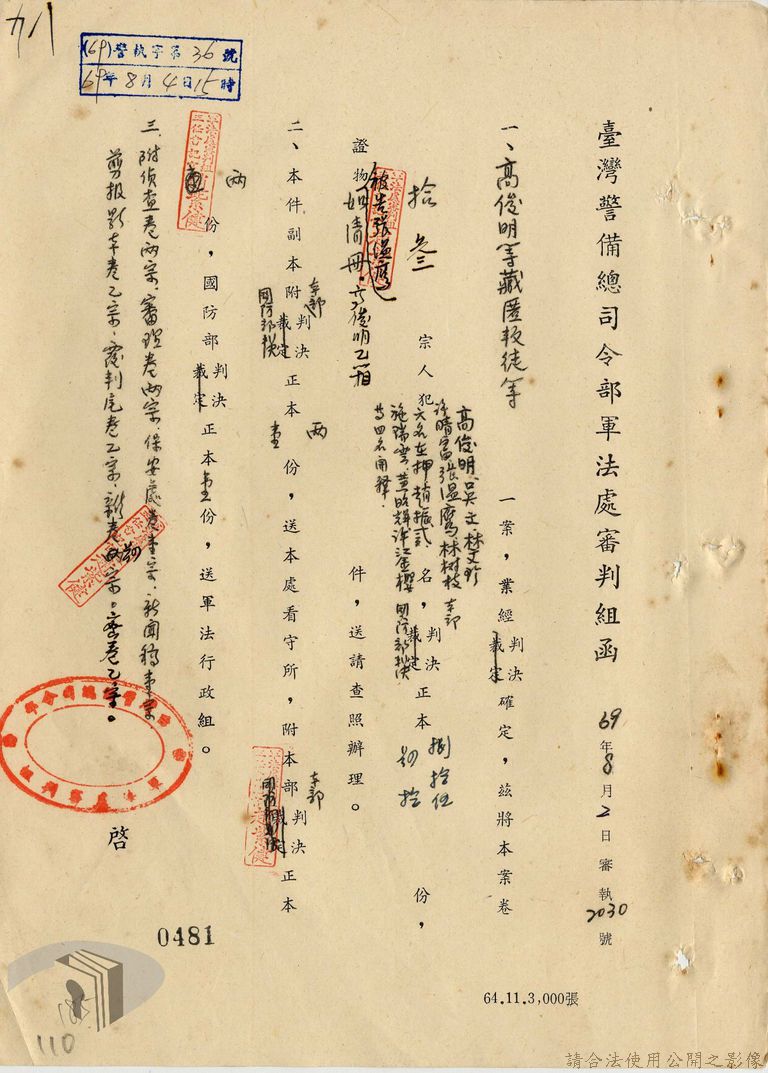 臺灣警備總司令部軍法處審判組函
69年8月2日審執2030號
一、高俊明等藏匿叛徒等一案，業經判決裁定確定，茲將本案卷
拾叁宗人犯
高俊明吳文林文珍
許晴富張溫鷹林树枝
六名在押趙振貳名，本部判決裁定正本捌拾伍份，
施瑞雲黃昭輝許江金櫻國防部
等四名開釋．
被告張溫鷹
證物如清冊．高俊明乙箱件，送請查照辦理。
二、本件副本附本部判決裁定正本兩份，送本處看守所，附本部判決正本
國防部
兩份，國防部判決裁定正本壹份，送軍法行政組。
三、附偵查卷兩宗．審理卷兩宗．保安處卷壹宗．新聞稿壹宗
剪报影本卷乙宗．覆判尾卷乙宗．
啓
(69)警執字第36號
69年8月4日15時
0481
110
64.11.3,000張
請合法使用公開之影像